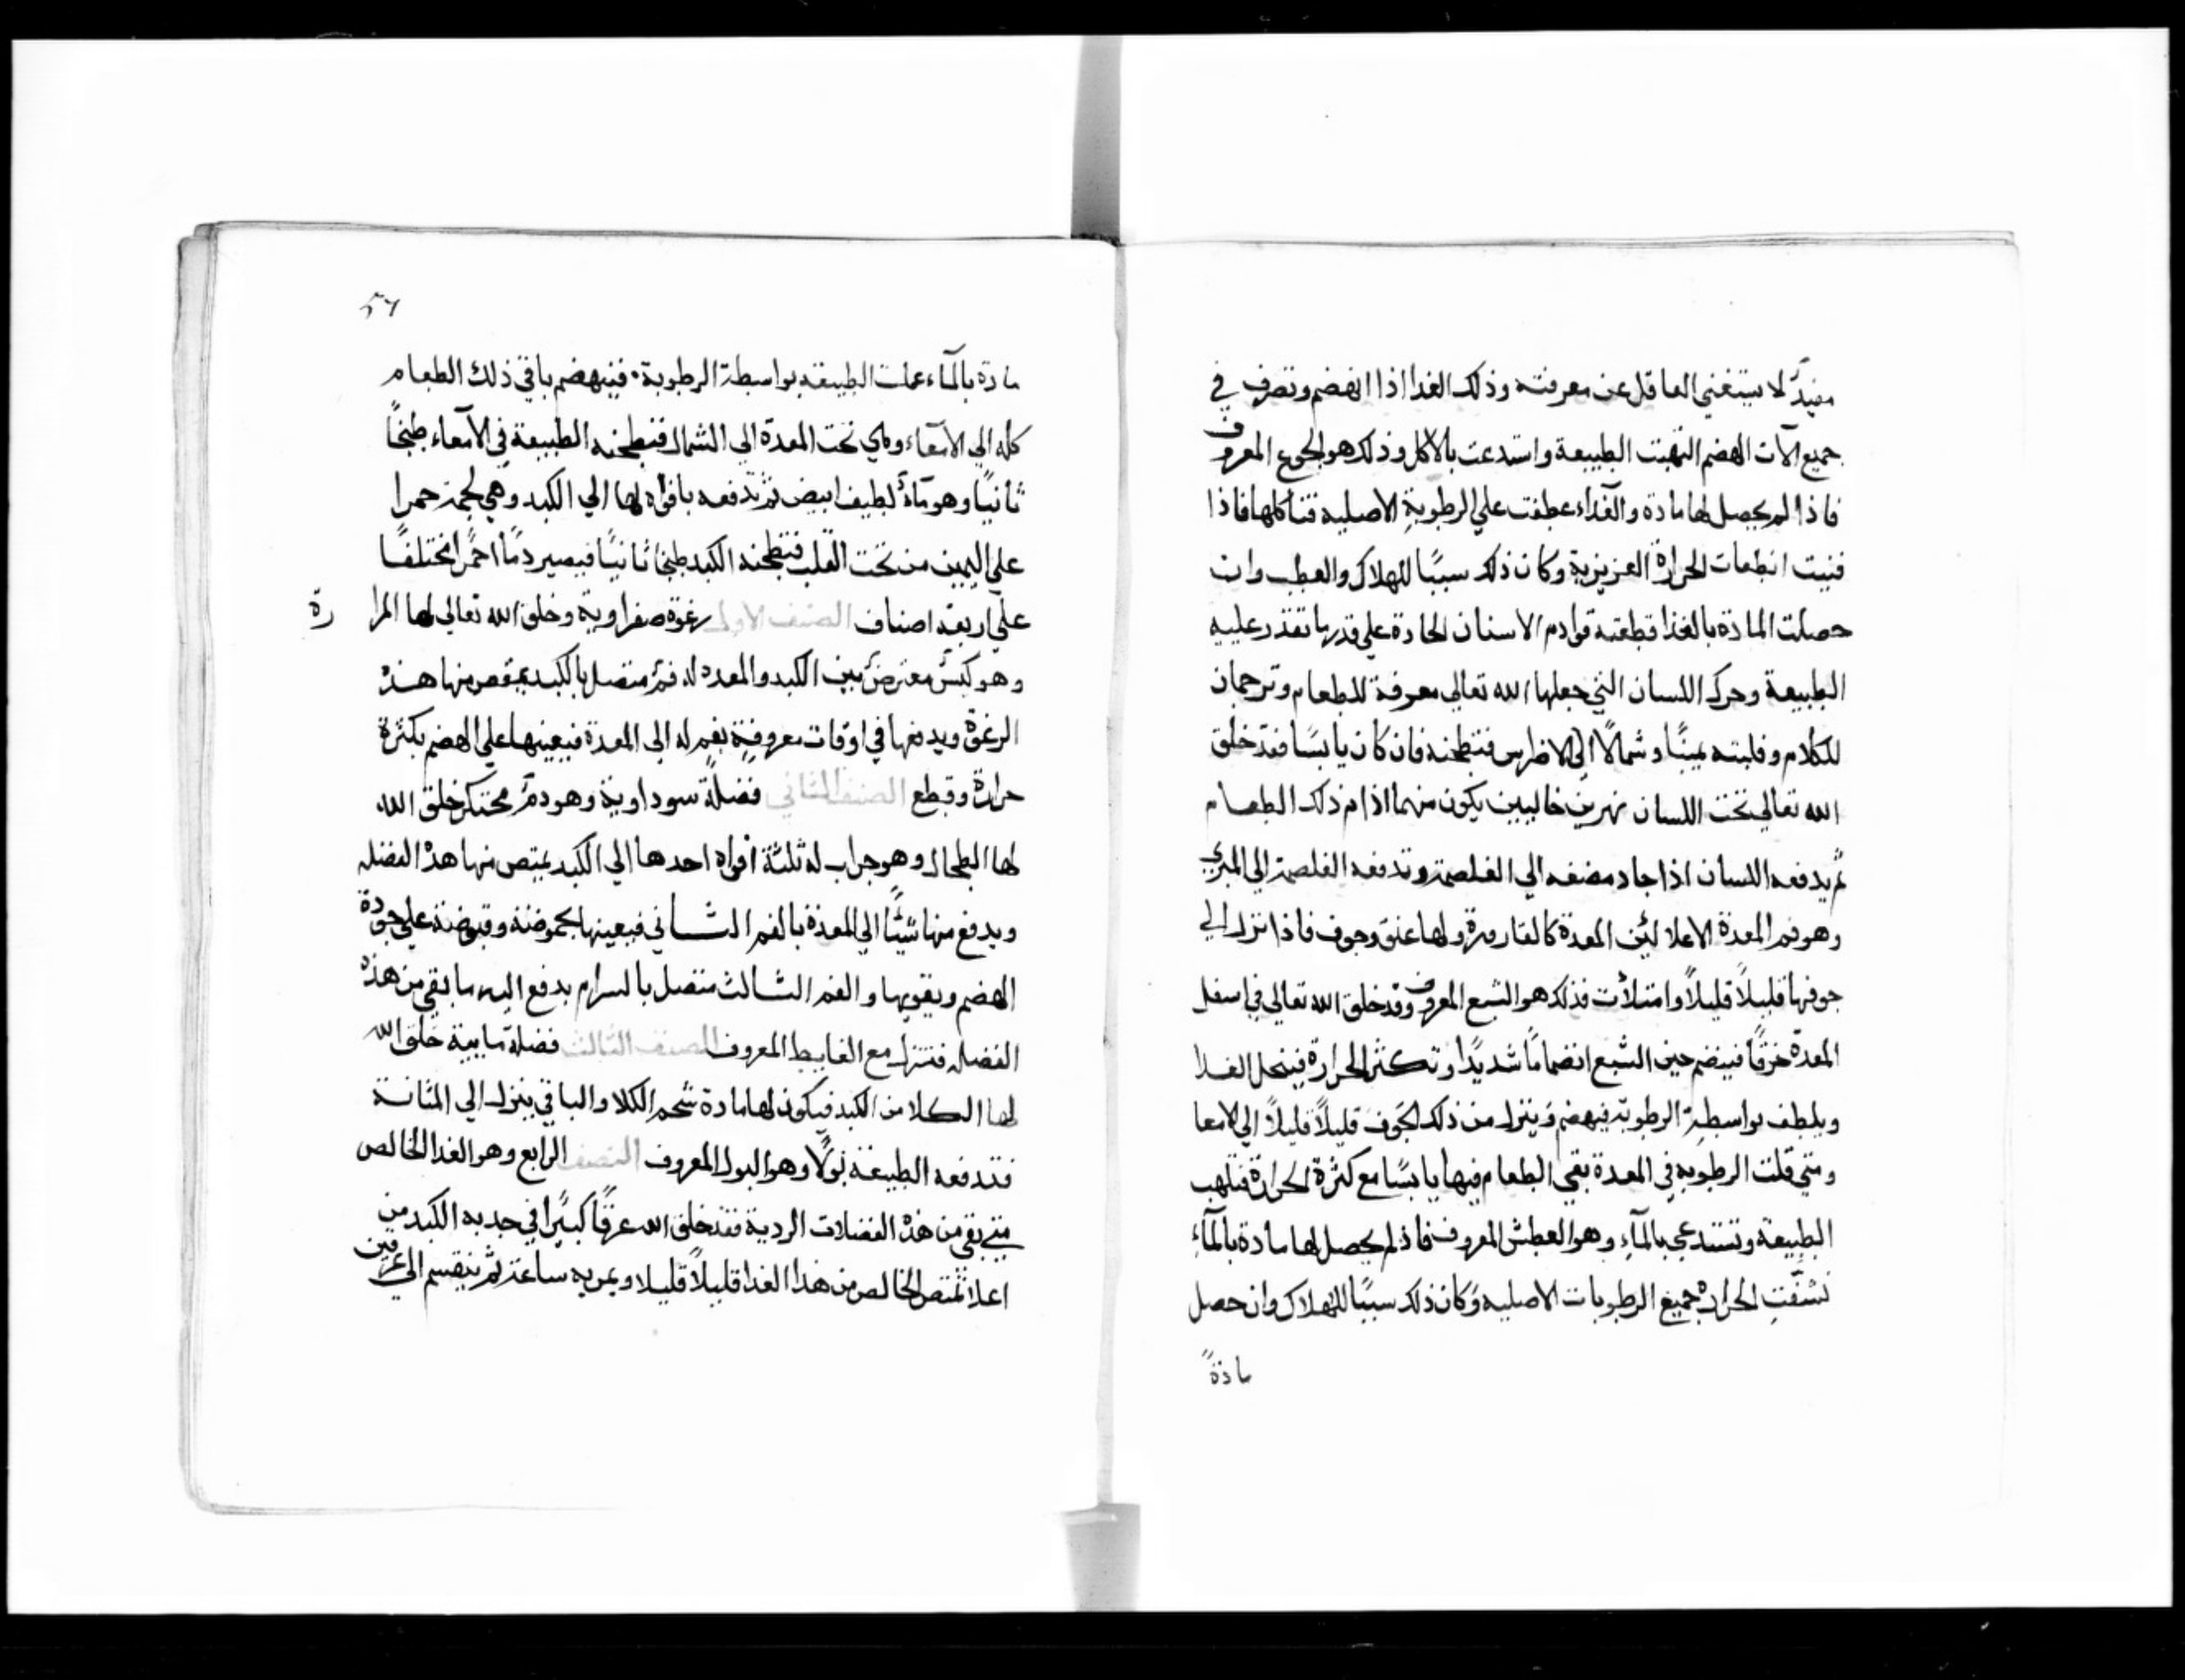 مفيدٌ لا يستغني العاقل عن معرفته وذلك الغدا اذا انهضم وتصرف في
جميع الات الهضم التهبت الطبيعة واستدعت بالاكل وذلك هو الجوع المعروف
فاذا لم يحصل لها مادة والغذاء عطفت علي الرطوبةِ الاصليه فتاكلها فاذا
فنيت انطفات الحرارة الغريزية وكان ذلك سببًا للهلاك والعطب وان
حصلت المادة بالغذا قطعته قوادم الاسنان الحادة علي قدر ما تقدر عليه
الطبيعة وحرك اللسان التي جعلها الله تعالي معرفة للطعام وترجمان
للكلام وقلبته يمينًا وشمالًا الي الاضراس فتطحنه فان كان يابسًا فقد خلق
الله تعالي تحت اللسان نهرين خاليين يكون منهما اذام ذلك الطعام
ثم يدفعه اللسان اذا جاد مضغه الي الغلصمة وتدفعه الغلصمة الي المري
وهو فم المعدة الاعلا لئن المعدة كالقارورة ولها عنق وجوف فاذا نزل الي
جوفها قليلاً قليلاً وامتلأت فذلك هو الشبع المعروف وقد خلق الله تعالي في اسفل
المعدة خرقًا فينضم حين الشبع انضمامًا شديدًا وتكثر الحرارة فينحل الغدا
ويلطف بواسطةِ الرطوبة فيهضم وينزل من ذلك الجوف قليلاً قليلاً الي الامعا
ومتي قلت الرطوبه في المعدة بقي الطعام فيها يابسًا مع كثرة الحرارة فتلهب
الطبيعة وتستدعي بالمآءِ وهو العطش المعروف فاذ لم يحصل لها مادة بالمآءِ
نشفت الحرارة جميع الرطوبات الاصليه وكان ذلك سببًا للهلاك وان حصل
مادةً
٥٦
مادة بالمآء عملت الطبيعه بواسطة الرطوبة فينهضم باقي ذلك الطعام
كله الي الامعآء وهي تحت المعدة الي الشمال فتطبخه الطبيعة في الامعاء طبخًا
ثانيًا وهو مآء لطيف ابيض ثم تدفعه بافواه لها الي الكبد وهي لحمة حمرا
علي اليمين من تحت القلب فتطبخه الكبد طبخا ثانيًا فيصير دمًا احمرًا مختلفًا
علي اربعة اصناف الصنف الاول رغوة صفراوية وخلق الله تعالي لها المرارة
وهو كيسٌ معترضٌ بين الكبد والمعده له فمٌ متصل بالكبد يمتص منها هذه
الرغوة ويدفعها في اوقات معروفةٍ بفمٍ له الي المعدة فيعينها علي الهضم بكثرة
حرارة وقطع الصنف الثاني فضلة سوداوية وهو دمٌ محتكر خلق الله
لها الطحال وهو جراب له ثلثة افواه احدها الي الكبد يمتص منها هذه الفضله
ويدفع منها شيئًا الي المعدة بالفم الثاني فيعينها بحموضته وقبوضته علي جودة
الهضم ويقويها والفم الثالث متصل بالسرام يدفع اليه ما بقي من هذه
الفضله فتنزل مع الغايط المعروف الصنف الثالث فضلة مايية خلق الله
لها الكلا من الكبد فيكون لها مادة شحم الكلا والباقي ينزل الي المثانة
فتدفعه الطبيعة بولًا وهو البول المعروف النصف الرابع وهو الغدا الخالص
متي بقي من هذه الفضلات الردية فقد خلق الله عرقًا كبيرًا في حدبة الكبد من
اعلا تمتص الخالص من هذا الغدا قليلاً قليلا ويمر به ساعة ثم ينقسم الي عرقين